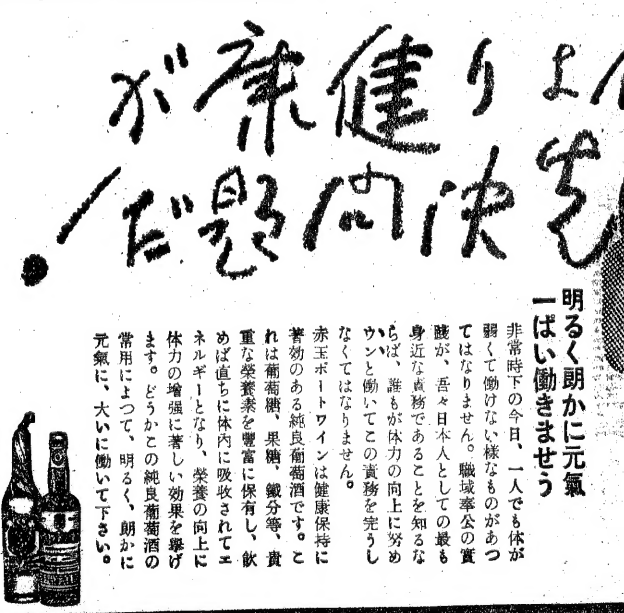 より健康が
先決問題だ!
明るく朗かに元氣
一ぱい働きませう
非常時下の今日、一人でも体が
弱くて働けない様なものがあつ
てはなりません。職域奉公の實
踐が、吾々日本人としての最も
身近な責務であることを知るな
らば、誰もが体力の向上に努め
ウンと働いてこの責務を完うし
なくてはなりません。
赤玉ポートワインは健康保持に
著効のある純良葡萄酒です。こ
れは葡萄糖、果糖、鐵分等、貴
重な榮養素を豐富に保有し、飮
めば直ちに体内に吸收されてエ
ネルギーとなり、榮養の向上に
体力の増强に著しい効果を擧げ
ます。どうかこの純良葡萄酒の
常用によつて、明るく、朗かに
元氣に、大いに働いて下さい。